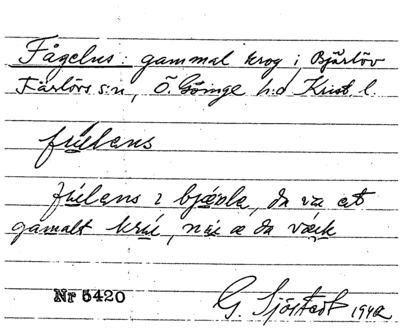 Fågelns: gammal krog i Bjärlöv
Färlövs s:n, Ö. Göinge h:d Krist l.
fúelans
fúelans i bjǽrla, da va et
gamalt krú, nú æ da væk
Nr 5420
G. Sjöstedt 1942